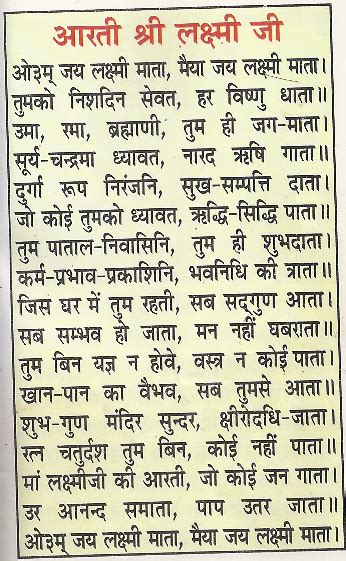 आरती श्री लक्ष्मी जी
ओ३म् जय लक्ष्मी माता, मैया जय लक्ष्मी माता।
तुमको निशदिन सेवत, हर विष्णु धाता॥
उमा, रमा, ब्रह्माणी, तुम ही जग-माता।
सूर्य-चन्द्रमा ध्यावत, नारद ऋषि गाता॥
दुर्गा रूप निरंजनि, सुख-सम्पत्ति दाता।
जो कोई तुमको ध्यावत, ऋद्धि-सिद्धि पाता॥
तुम पाताल-निवासिनि, तुम ही शुभदाता।
कर्म-प्रभाव-प्रकाशिनि, भवनिधि की त्राता॥
जिस घर में तुम रहती, सब सद्‌गुण आता।
सब सम्भव हो जाता, मन नहीं घबराता॥
तुम बिन यज्ञ न होवे, वस्त्र न कोई पाता।
खान-पान का वैभव, सब तुमसे आता॥
शुभ-गुण मंदिर सुन्दर, क्षीरोदधि-जाता।
रत्न चतुर्दश तुम बिन, कोई नहीं पाता॥
मां लक्ष्मीजी की आरती, जो कोई जन गाता।
उर आनन्द समाता, पाप उतर जाता॥
ओ३म् जय लक्ष्मी माता, मैया जय लक्ष्मी माता।